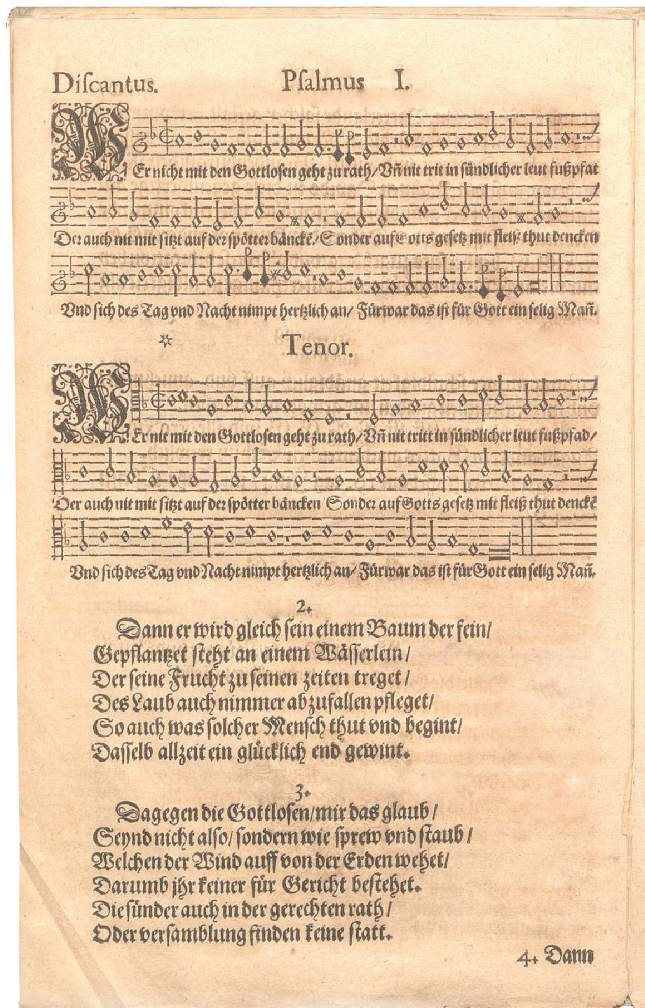 Diſcantus. Pſalmus I.
WEr nicht mit den Gottloſen geht zu rath/ Vn̄ nit trit in ſündlicher leut fußpfat
Der auch nit mit ſitzt auf der ſpötter bänckē/ Sonder auf Gotts geſetz mit fleiß thut dencken
Vnd ſich des Tag vnd Nacht nimpt hertzlich an/ Fürwar das iſt für Gott ein ſelig Man̄.
Tenor.
WEr nit mit den Gottloſen geht zu rath/ Vn̄ nit tritt in ſündlicher leut fußpfad/
Der auch nit mit ſitzt auf der ſpötter bäncken Sonder auf Gotts geſetz mit fleiß thut denckē
Vnd ſich des Tag vnd Nacht nimpt hertzlich an/ Fürwar das iſt für Gott ein ſelig Man̄.
2.
Dann er wird gleich ſein einem Baum der fein/
Gepflantzet ſteht an einem Wäſſerlein/
Der ſeine Frucht zu ſeinen zeiten treget/
Des Laub auch nimmer abzufallen pfleget/
So auch was ſolcher Menſch thut vnd begint/
Daſſelb allzeit ein glücklich end gewint.
3.
Dagegen die Gottloſen/ mir das glaub/
Seynd nicht alſo/ ſondern wie ſprew vnd ſtaub/
Welchen der Wind auff von der Erden wehet/
Darumb jhr keiner für Gericht beſtehet.
Die ſünder auch in der gerechten rath/
Oder verſamblung finden keine ſtatt.
4. Dann